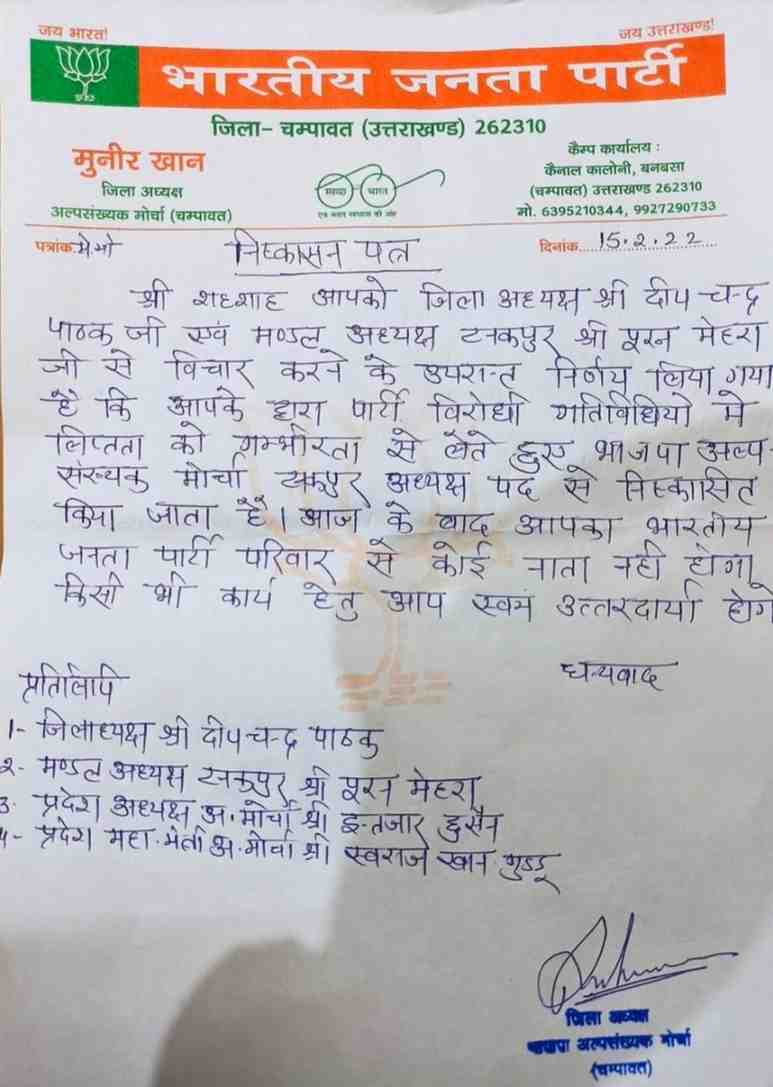 जय भारत!
जय उत्तराखण्ड!
भारतीय जनता पार्टी
जिला- चम्पावत (उत्तराखण्ड) 262310
मुनीर खान
जिला अध्यक्ष
अल्पसंख्यक मोर्चा (चम्पावत)
स्वच्छ भारत
एक कदम स्वच्छता की ओर
कैम्प कार्यालय :
कैनाल कालोनी, बनबसा
(चम्पावत) उत्तराखण्ड 262310
मो. 6395210344, 9927290733
पत्रांक मे.मो
निष्कासन पत्र
दिनांक....15.2.22....
श्री शहशाह आपको जिला अध्यक्ष श्री दीप चन्द्र
पाठक जी एवं मण्डल अध्यक्ष टनकपुर श्री पूरन मेहरा
जी से विचार करने के उपरान्त निर्णय लिया गया
है कि आपके द्वारा पार्टी विरोधी गतिविधियो मे
लिप्तता को गम्भीरता से लेते हुए भाजपा अल्प-
संख्यक मोर्चा टनकपुर अध्यक्ष पद से निष्कासित
किया जाता है। आज के बाद आपका भारतीय
जनता पार्टी परिवार से कोई नाता नही होगा
किसी भी कार्य हेतु आप स्वमं उत्तरदायी होगे
धन्यवाद
प्रतिलिपि
1- जिलाध्यक्ष श्री दीप चन्द्र पाठक
2- मण्डल अध्यक्ष टनकपुर श्री पूरन मेहरा
3- प्रदेश अध्यक्ष अ. मोर्चा श्री इन्तजार हुसैन
4- प्रदेश महा. मंत्री अ. मोर्चा श्री स्वराज खान गुड्डू
जिला अध्यक्ष
भाजपा अल्पसंख्यक मोर्चा
(चम्पावत)